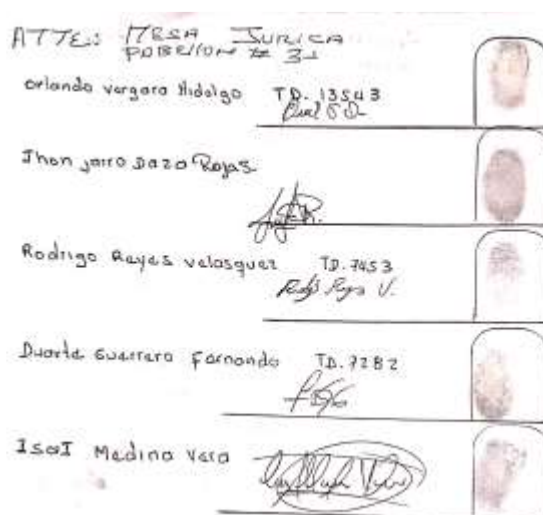 ATTE: MESA JURICA
PABELLON # 31
Orlando vergara Hidalgo TD. 13543
Jhon jairo Daza Rojas
Rodrigo Reyes velasquez TD. 7453
Rodrigo Reyes V.
Duarte Guerrero Fernando TD. 7282
IsaI Medina Vera